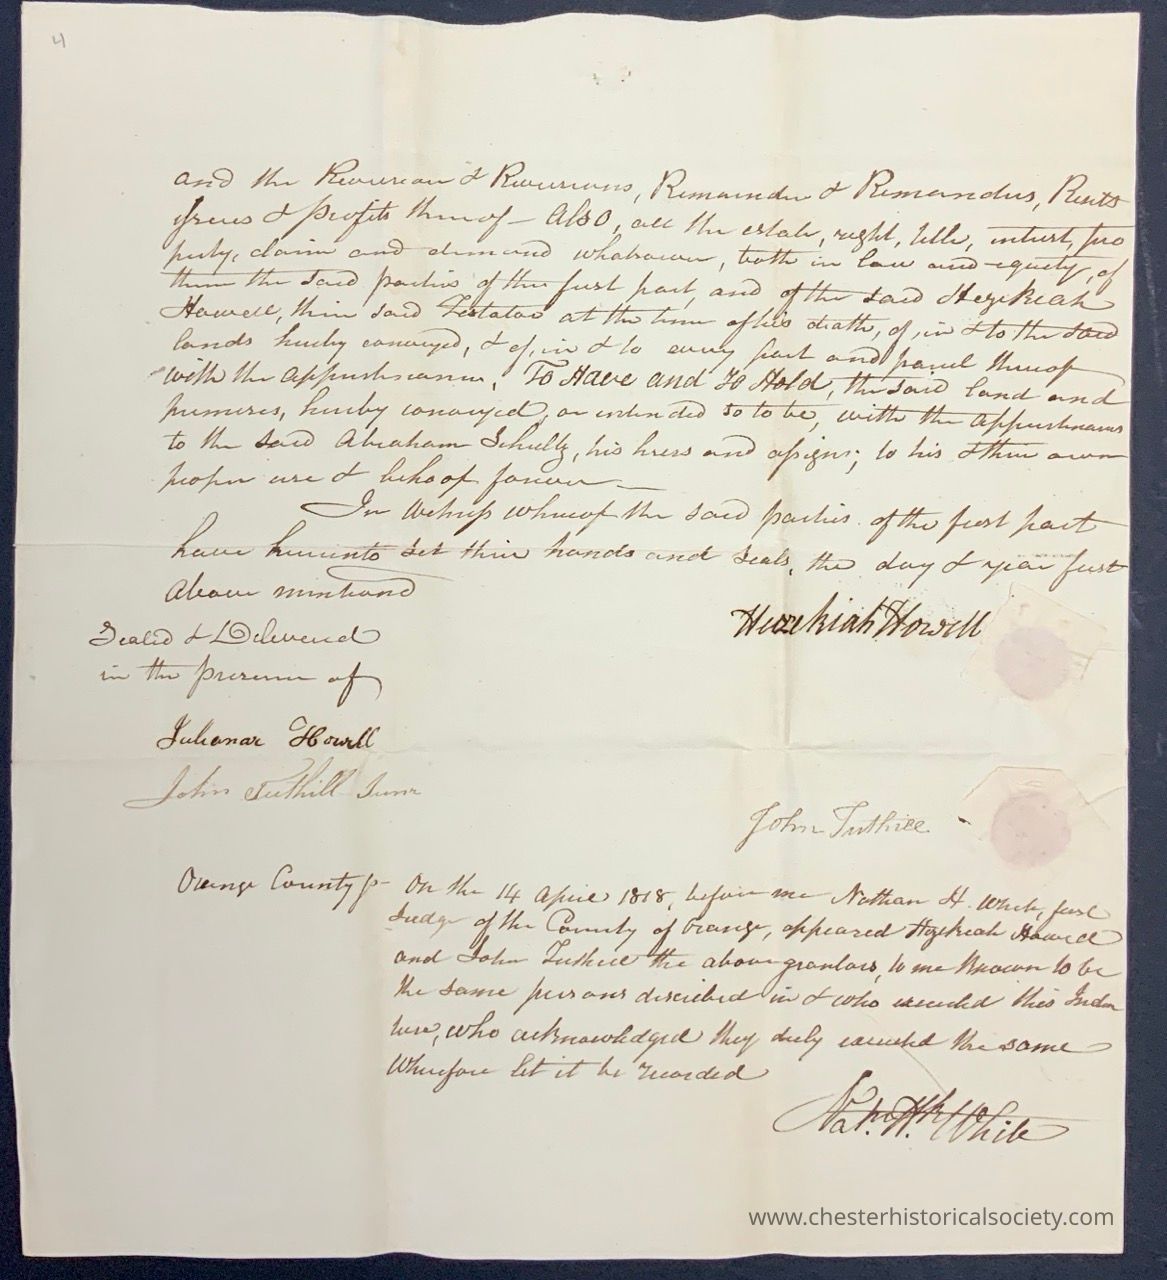 4
and the Reversion & Reversions, Remainder & Remainders, Rents
Issues & profits thereof – Also, all the estate, right, title, interest, pro
perty, claim and demand whatsoever, both in law and equity, of
them the said parties of the first part, and of the said Hezekiah
Howell, their said Testator at the time of his death, of, in & to the said
lands hereby conveyed, & of, in & to every part and parcel thereof
with the appurtenances, To Have and To Hold, the said land and
premises, hereby conveyed, or intended so to be, with the appurtenances
to the said Abraham Schultz, his heirs and assigns; to his & their own
proper use & behoof forever –
In Witness whereof the said parties of the first part
have hereunto set their hands and seals, the day & year first
above mentioned
Sealed & Delivered
in the presence of
Hezekiah Howell
Julianar Howell
John Tuthill Junr
John Tuthill
Orange County ss
On the 14 April 1818, before me Nathan H. White, first
Judge of the County of Orange, appeared Hezekiah Howell
and John Tuthill the above grantors, to me known to be
the same persons described in & who executed this Inden
ture, who acknowledged they duly executed the same
Wherefore let it be recorded
Nathn. H. White
www.chesterhistoricalsociety.com